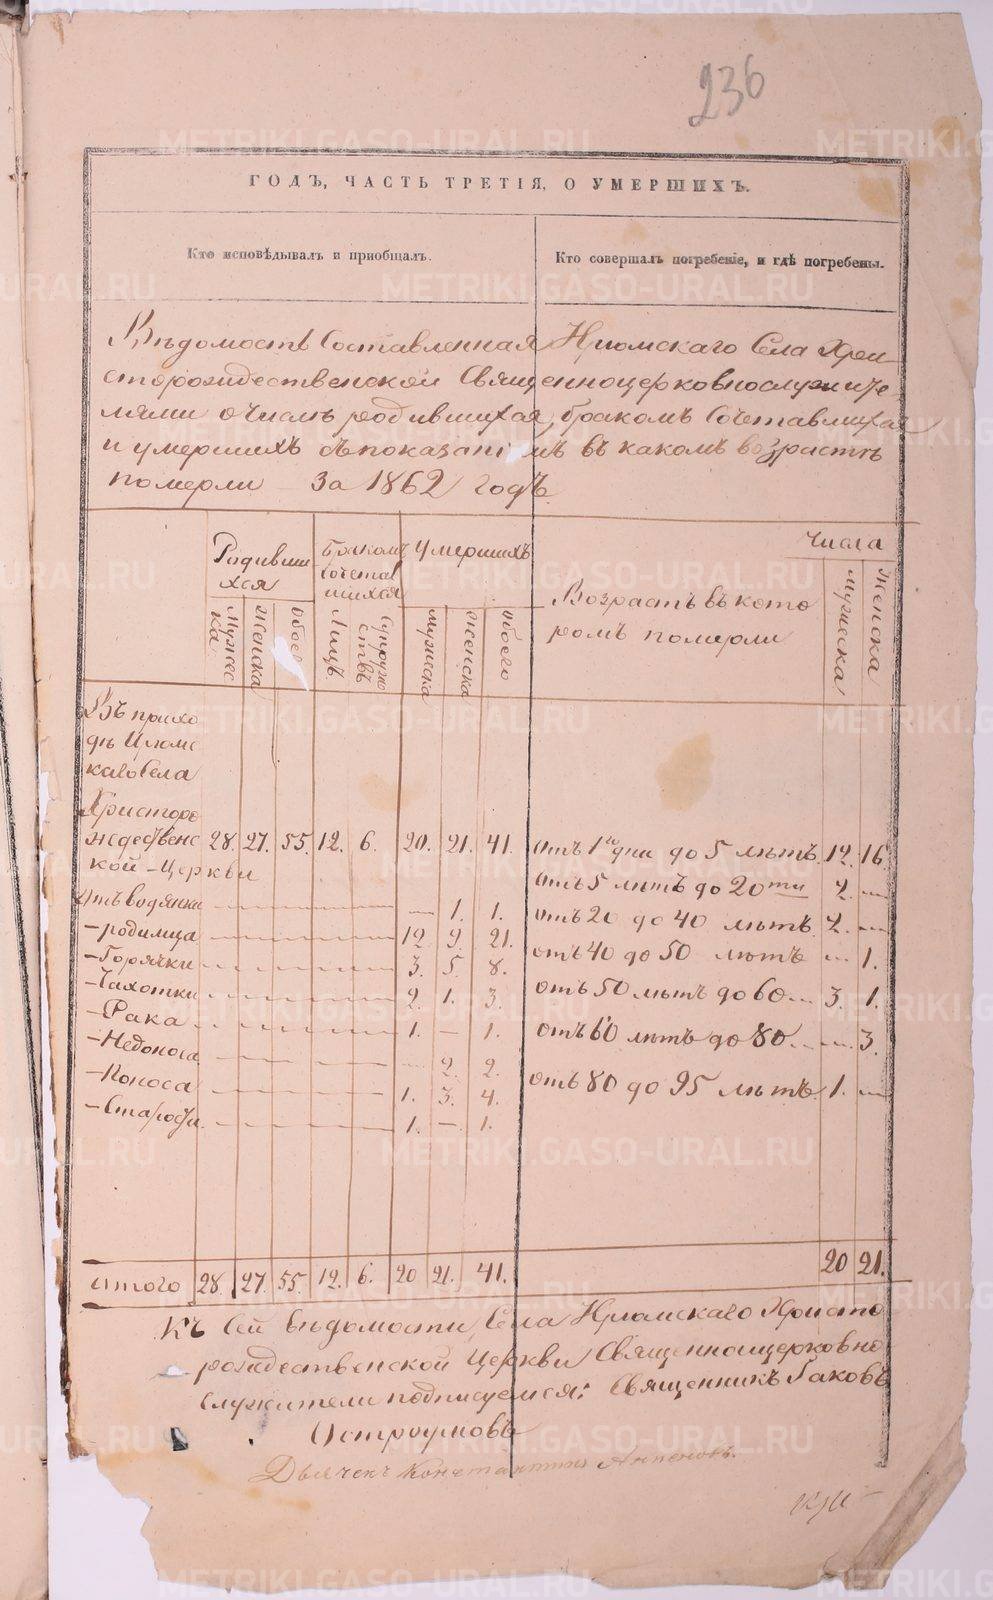 236
ГОДЪ, ЧАСТЬ ТРЕТІЯ, О УМЕРШИХЪ.
Кто исповѣдывалъ и пріобщалъ.
Кто совершалъ погребеніе, и гдѣ погребены.
Вѣдомость Составленная Села Хри
сторождественской Священноцерковнослужите
лями о числѣ родившихся, бракомъ Сочетавшихся
и умершихъ съ показаніемъ въ какомъ возрастѣ
померли За 1862 годъ
Родивши
хся
Бракомъ
Сочетав
шихся
Умершихъ
Возрастъ въ кото
ромъ померли
Числа
Мужес
ка
Женска
Обоег
Лицъ
Супруже
ствъ
мужеска
женска
обоего
Мужеска
Женска
Въ прихо
дѣ
каго Села
Христоро
ждественс 28. 27. 55. 12. 6. 20. 21. 41. Отъ 1го дни до 5 лѣтъ 12. 16.
кой Церкви
Отъ 5 лѣтъ до 20ти 2. —
Отъ водянки — — — — — — 1. 1. Отъ 20 до 40 лѣтъ 2. —
– родимца — — — — — 12 9. 21.
– Горячки — — — — — 3. 5. 8. отъ 40 до 50 лѣтъ — 1.
– Чахотки — — — — — 2 1. 3. отъ 50 лѣтъ до 60 3. 1.
– Рака — — — — — 1. — 1. отъ 60 лѣтъ до 80 — 3.
– — — — — — — 2. 2.
– Поноса — — — — — 1. 3. 4. отъ 80 до 95 лѣтъ 1. —
– Старости — — — — — 1. — 1.
итого 28. 27. 55. 12. 6. 20 21. 41. 20 21.
Къ Сей вѣдомости, Села Христо
рождественской Церкви Священноцерковно
служители подписуемся: Священникъ Іаковъ
Остроумовъ
Дьячекъ Константинъ
METRIKI.GASO-URAL.RU